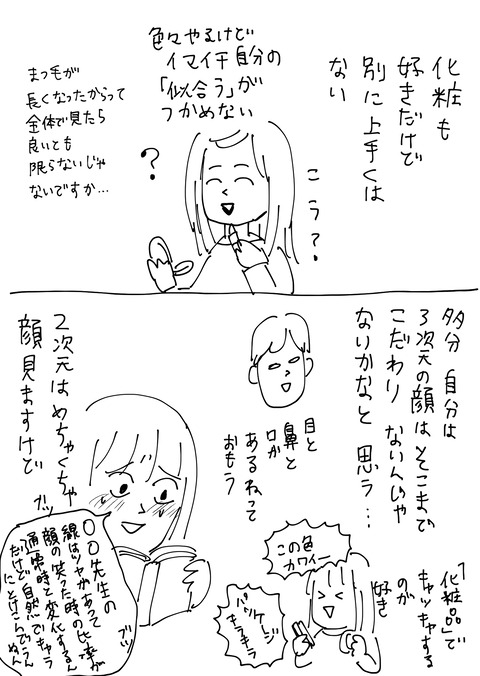 化粧も
好きだけで
別に上手くは
ない
色々やるけど
イマイチ自分の
「似合う」が
つかめない
まつ毛が
長くなったからって
全体で見たら
良いとも
限らないじゃ
ないですか…
?
こう?
多分自分は
3次元の顔はそこまで
こだわりないんじゃ
ないかなと思う…
目と
鼻と
口が
あるねって
おもう
2次元はめちゃくちゃ
顔見ますけど
〇〇先生の
線はツヤがあって
顔の笑った時の比率が
通常時と変化するん
だけど自然でキャラ
にとけこんでうん
ぬん
「化粧品」で
キャッキャする
のが
好き
この色
カワイー
パッケージ
キラキラ